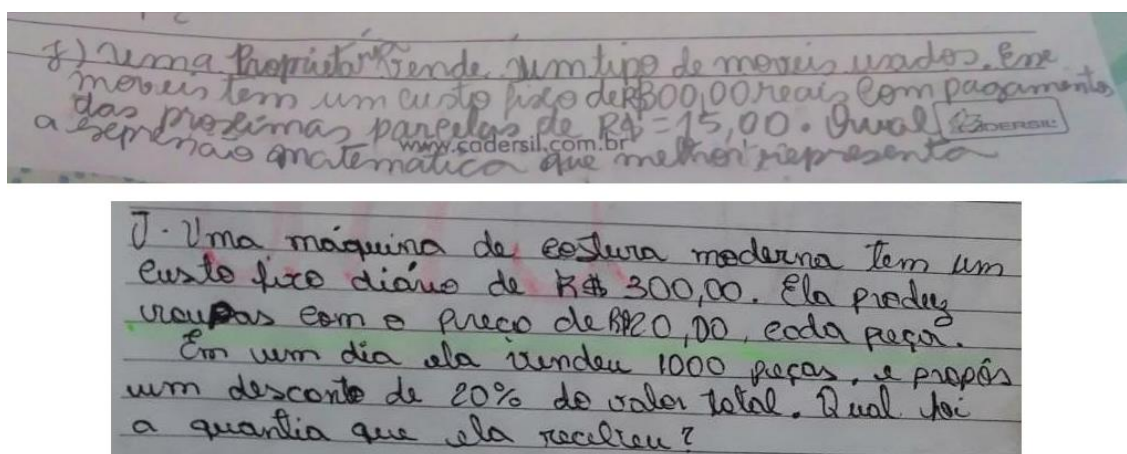 J) Uma Proprietária vende um tipo de moveis usados. Esse
moveis tem um custo fixo de R$300,00 reais com pagamento
das proximas parcelas de R$ = 15,00. Qual
CADERSIL
a expressão matemática que melhor representa
www.cadersil.com.br
J. Uma máquina de costura moderna tem um
custo fixo diário de R$ 300,00. Ela produz
roupas com o preço de R$20,00, cada peça.
Em um dia ela vendeu 1000 peças, e propôs
um desconto de 20% do valor total. Qual foi
a quantia que ela recebeu?